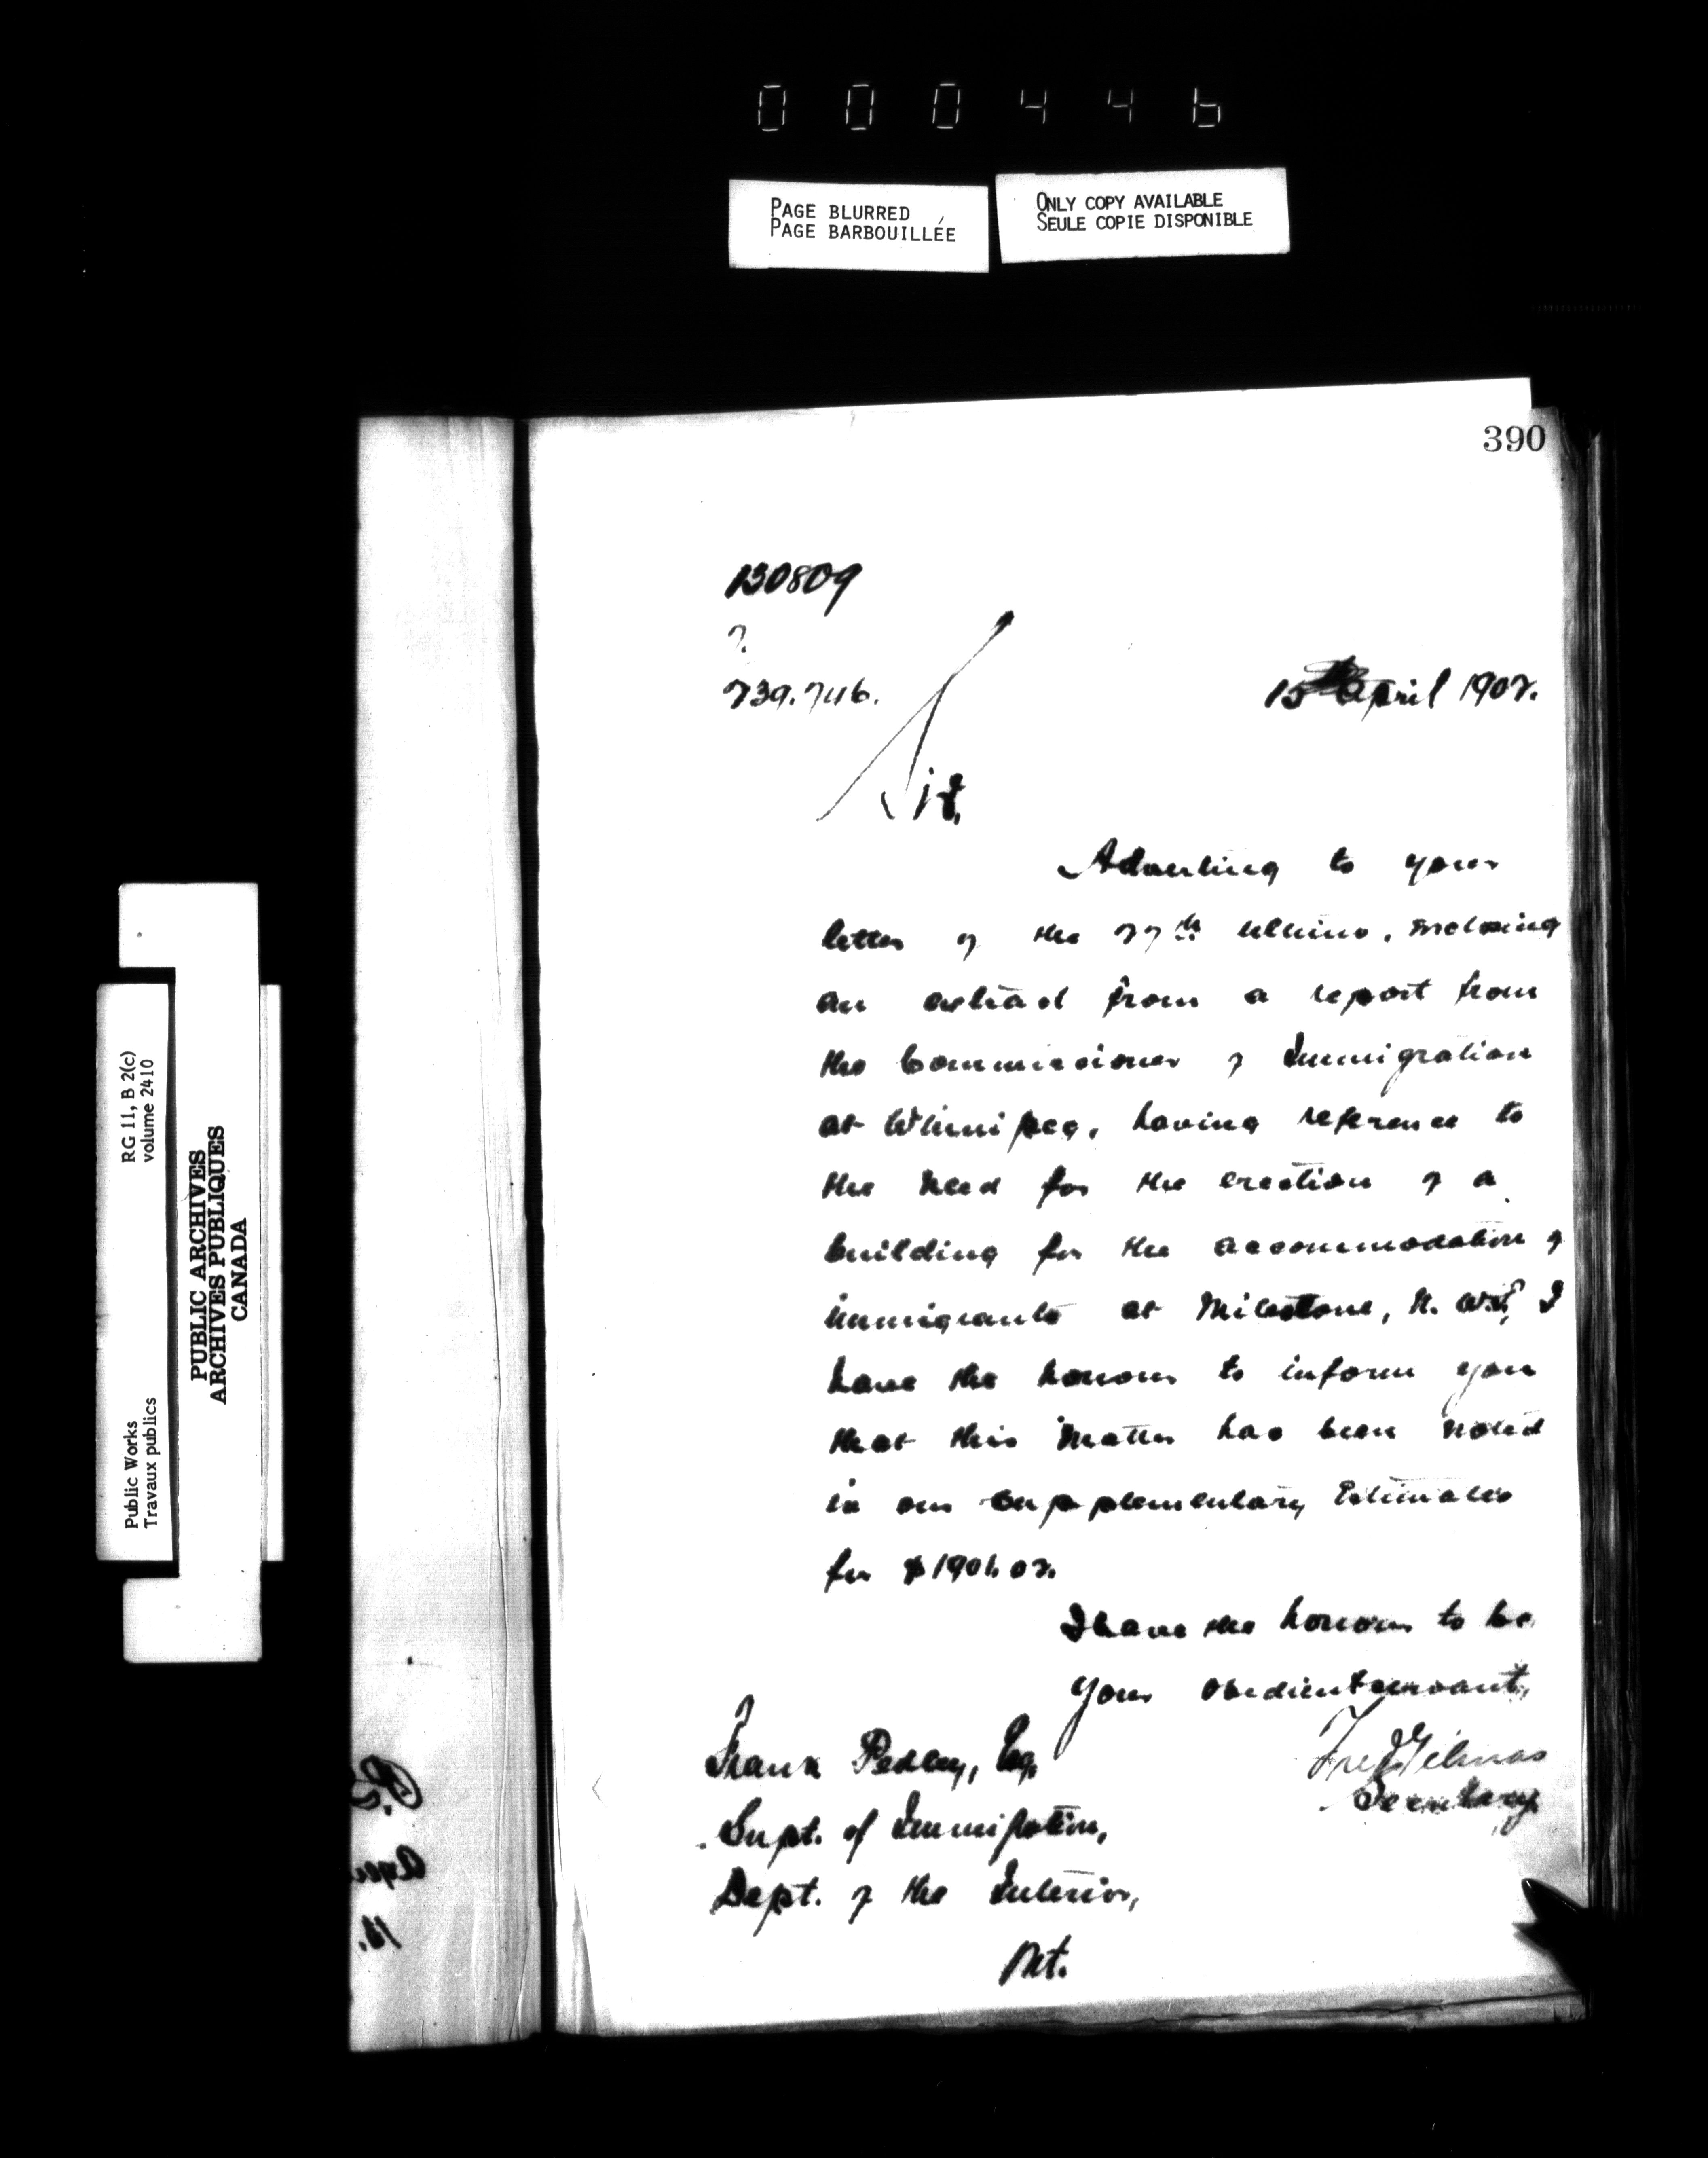 000446
PAGE BLURRED
PAGE BARBOUILLÉE
ONLY COPY AVAILABLE
SEULE COPIE DISPONIBLE
390
130809
2.
239.746.
15th April 1902.
Sir,
Adverting to your
letter of the 27th ultimo, enclosing
an extract from a report from
the Commissioner of Immigration
at Winnipeg, having reference to
the need for the erection of a
building for the accommodation of
immigrants at Milestone, N.W.T., I
have the honour to inform you
that this matter has been noted
in our supplementary Estimates
for 1901.02.
I have the honour to be
Your obedient servant,
Fred Gélinas
Secretary
Frank Pedley, Esq,
Supt. of Immigration,
Dept. of the Interior,
RG 11, B 2(c)
volume 2410
Public Works
Travaux publics
PUBLIC ARCHIVES
ARCHIVES PUBLIQUES
CANADA